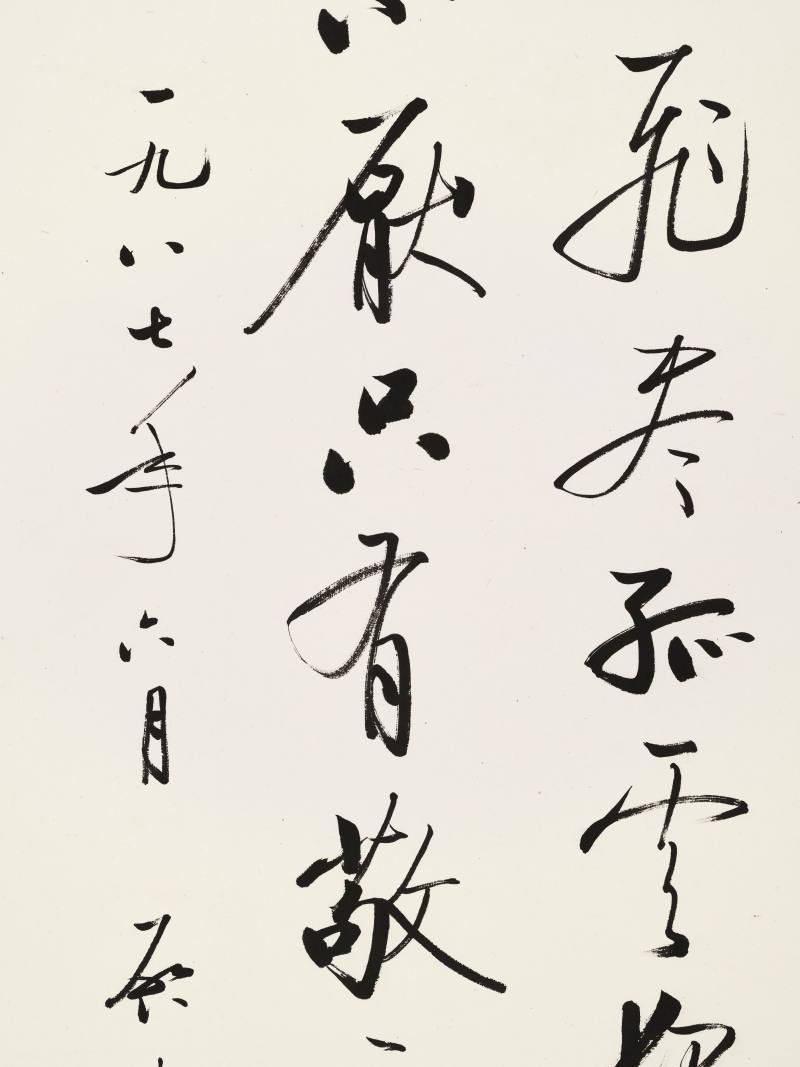 飛尽孤雲
厭只有敬
一九八七年六月